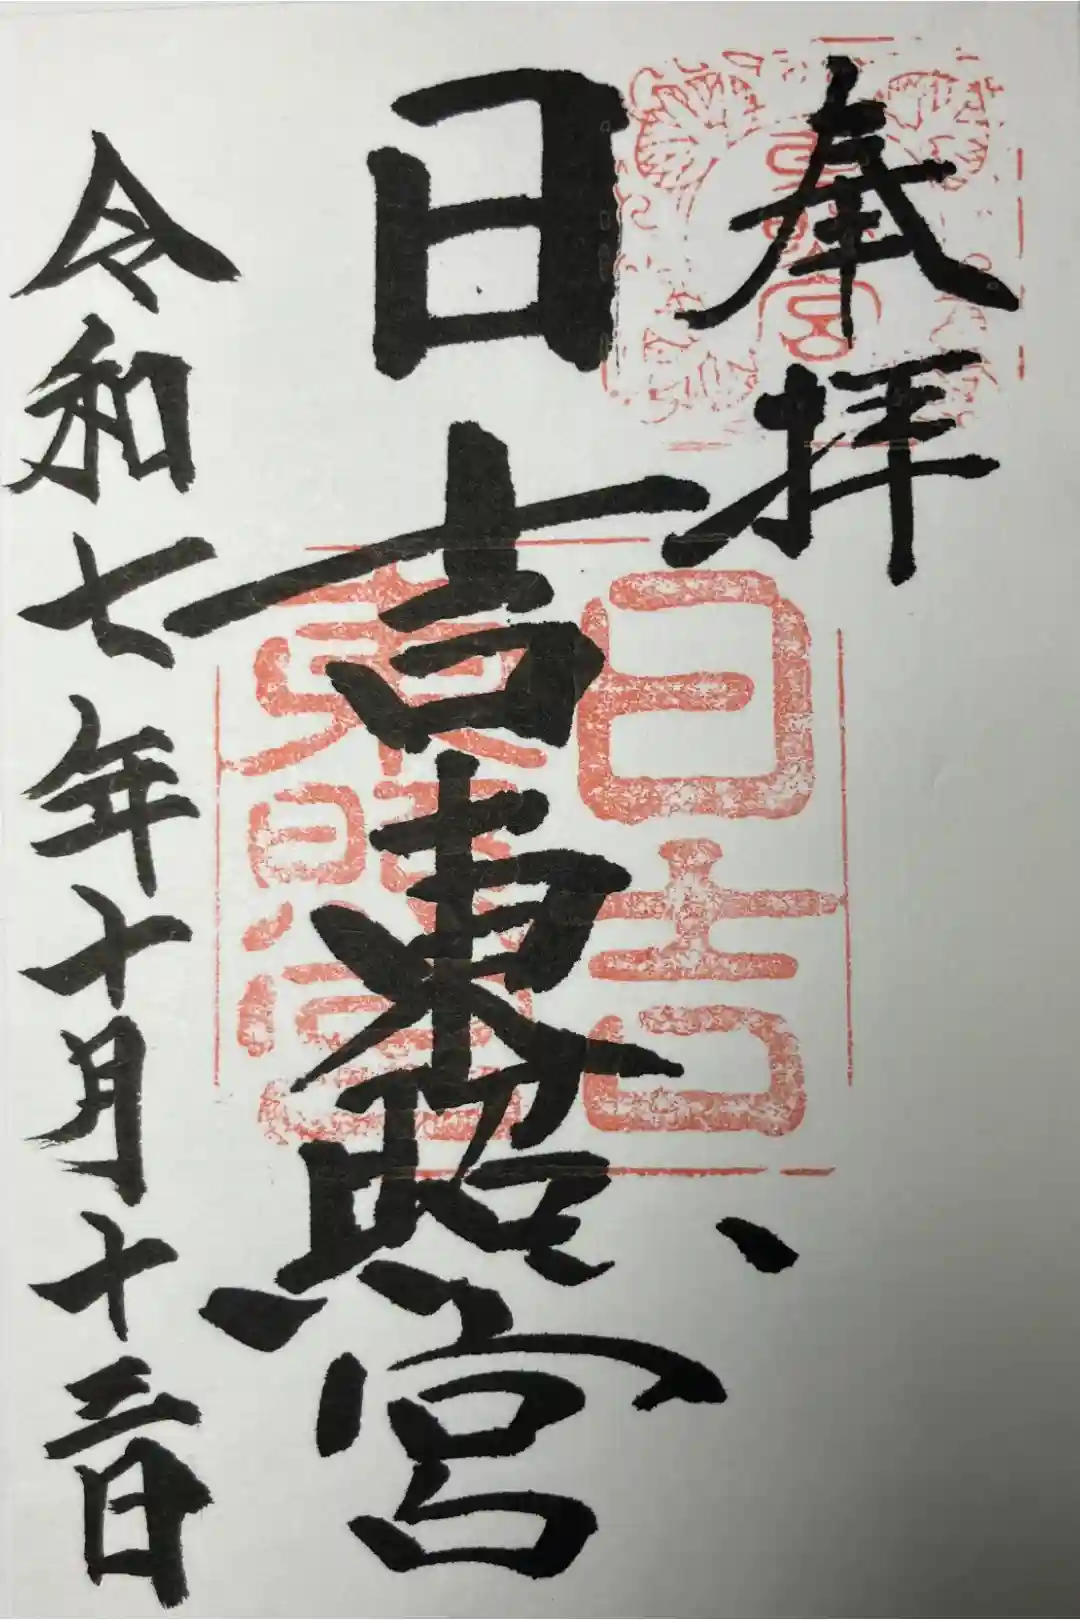 奉拝
東照宮
日吉東照宮
日吉
東照宮
令和七年十月十三日